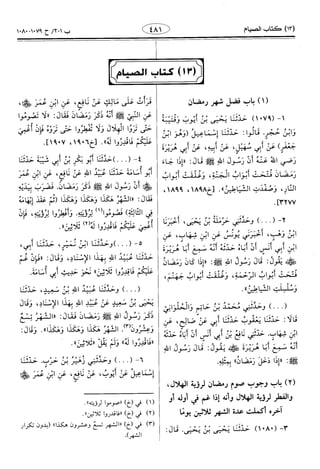 (١٣) كتاب الصيام
٤٨١
ب ١، ٢/ ح ١٠٧٩، ١٠٨٠
(١٣) كتاب الصيام
(١) باب فضل شهر رمضان
١- (١٠٧٩) حَدَّثَنَا يَحْيَى بْنُ أَيُّوبَ وَقُتَيْبَةُ
وَابْنُ حُجْرٍ. قَالُوا: حَدَّثَنَا إِسْمَاعِيلُ (وَهُوَ ابْنُ
جَعْفَرٍ) عَنْ أَبِي سُهَيْلٍ، عَنْ أَبِيهِ، عَنْ أَبِي هُرَيْرَةَ
رَضِيَ اللهُ عَنْهُ أَنَّ رَسُولَ اللهِ ﷺ قَالَ: «إِذَا جَاءَ
رَمَضَانُ فُتِحَتْ أَبْوَابُ الْجَنَّةِ، وَغُلِّقَتْ أَبْوَابُ
النَّارِ، وَصُفِّدَتِ الشَّيَاطِينُ». [خ١٨٩٨، ١٨٩٩،
٣٢٧٧].
٢- (...) وَحَدَّثَنِي حَرْمَلَةُ بْنُ يَحْيَى. أَخْبَرَنَا
ابْنُ وَهْبٍ. أَخْبَرَنِي يُونُسُ عَنِ ابْنِ شِهَابٍ، عَنِ
ابْنِ أَبِي أَنَسٍ أَنَّ أَبَاهُ حَدَّثَهُ أَنَّهُ سَمِعَ أَبَا هُرَيْرَةَ
يَقُولُ: قَالَ رَسُولُ اللهِ ﷺ: «إِذَا كَانَ رَمَضَانُ
فُتِّحَتْ أَبْوَابُ الرَّحْمَةِ، وَغُلِّقَتْ أَبْوَابُ جَهَنَّمَ،
وَسُلْسِلَتِ الشَّيَاطِينُ».
(...) وَحَدَّثَنِي مُحَمَّدُ بْنُ حَاتِمٍ وَالْحُلْوَانِيُّ
قَالَا: حَدَّثَنَا يَعْقُوبُ حَدَّثَنَا أَبِي عَنْ صَالِحٍ، عَنِ
ابْنِ شِهَابٍ. حَدَّثَنِي نَافِعُ بْنُ أَبِي أَنَسٍ أَنَّ أَبَاهُ حَدَّثَهُ
أَنَّهُ سَمِعَ أَبَا هُرَيْرَةَ يَقُولُ: قَالَ رَسُولُ اللهِ
ﷺ: «إِذَا دَخَلَ رَمَضَانُ» بِمِثْلِهِ.
(٢) باب وجوب صوم رمضان لرؤية الهلال،
والفطر لرؤية الهلال وأنه إذا غم في أوله أو
آخره أكملت عدة الشهر ثلاثين يومًا
٣- (١٠٨٠) حَدَّثَنَا يَحْيَى بْنُ يَحْيَى. قَالَ:
قَرَأْتُ عَلَى مَالِكٍ عَنْ نَافِعٍ، عَنِ ابْنِ عُمَرَ
عَنِ النَّبِيِّ ﷺ أَنَّهُ ذَكَرَ رَمَضَانَ فَقَالَ: «لَا تَصُومُوا
حَتَّى تَرَوُا الْهِلَالَ وَلَا تُفْطِرُوا حَتَّى تَرَوْهُ فَإِنْ أُغْمِيَ
عَلَيْكُمْ فَاقْدِرُوا لَهُ». [خ١٩٠٦، ١٩٠٧].
٤- (...) حَدَّثَنَا أَبُو بَكْرِ بْنُ أَبِي شَيْبَةَ حَدَّثَنَا
أَبُو أُسَامَةَ حَدَّثَنَا عُبَيْدُ اللهِ عَنْ نَافِعٍ، عَنِ ابْنِ عُمَرَ
أَنَّ رَسُولَ اللهِ ﷺ ذَكَرَ رَمَضَانَ. فَضَرَبَ بِيَدَيْهِ
فَقَالَ: «الشَّهْرُ هَكَذَا وَهَكَذَا وَهَكَذَا (ثُمَّ عَقَدَ إِبْهَامَهُ
فِي الثَّالِثَةِ) فَصُومُوا(١) لِرُؤْيَتِهِ. وَأَفْطِرُوا لِرُؤْيَتِهِ. فَإِنْ
أُغْمِيَ عَلَيْكُمْ فَاقْدِرُوا لَهُ(٢) ثَلَاثِينَ».
٥- (...) وَحَدَّثَنَا ابْنُ نُمَيْرٍ. حَدَّثَنَا أَبِي.
حَدَّثَنَا عُبَيْدُ اللهِ بِهَذَا الْإِسْنَادِ. وَقَالَ: «فَإِنْ غُمَّ
عَلَيْكُمْ فَاقْدِرُوا ثَلَاثِينَ» نَحْوَ حَدِيثِ أَبِي أُسَامَةَ.
(...) وَحَدَّثَنَا عُبَيْدُ اللهِ بْنُ سَعِيدٍ. حَدَّثَنَا
يَحْيَى بْنُ سَعِيدٍ عَنْ عُبَيْدِ اللهِ بِهَذَا الْإِسْنَادِ. وَقَالَ:
ذَكَرَ رَسُولُ اللهِ ﷺ رَمَضَانَ فَقَالَ: «الشَّهْرُ تِسْعٌ
وَعِشْرُونَ(٣). الشَّهْرُ هَكَذَا وَهَكَذَا وَهَكَذَا». وَقَالَ:
«فَاقْدِرُوا لَهُ» وَلَمْ يَقُلْ «ثَلَاثِينَ».
٦- (...) وَحَدَّثَنِي زُهَيْرُ بْنُ حَرْبٍ. حَدَّثَنَا
إِسْمَاعِيلُ عَنْ أَيُّوبَ، عَنْ نَافِعٍ، عَنِ ابْنِ عُمَرَ
(١) في (خ) «صوموا لرؤيته».
(٢) في (خ) «فاقدروا ثلاثين».
(٣) في (خ) «الشهر تسع وعشرون هكذا» (بدون تكرار
الشهر).